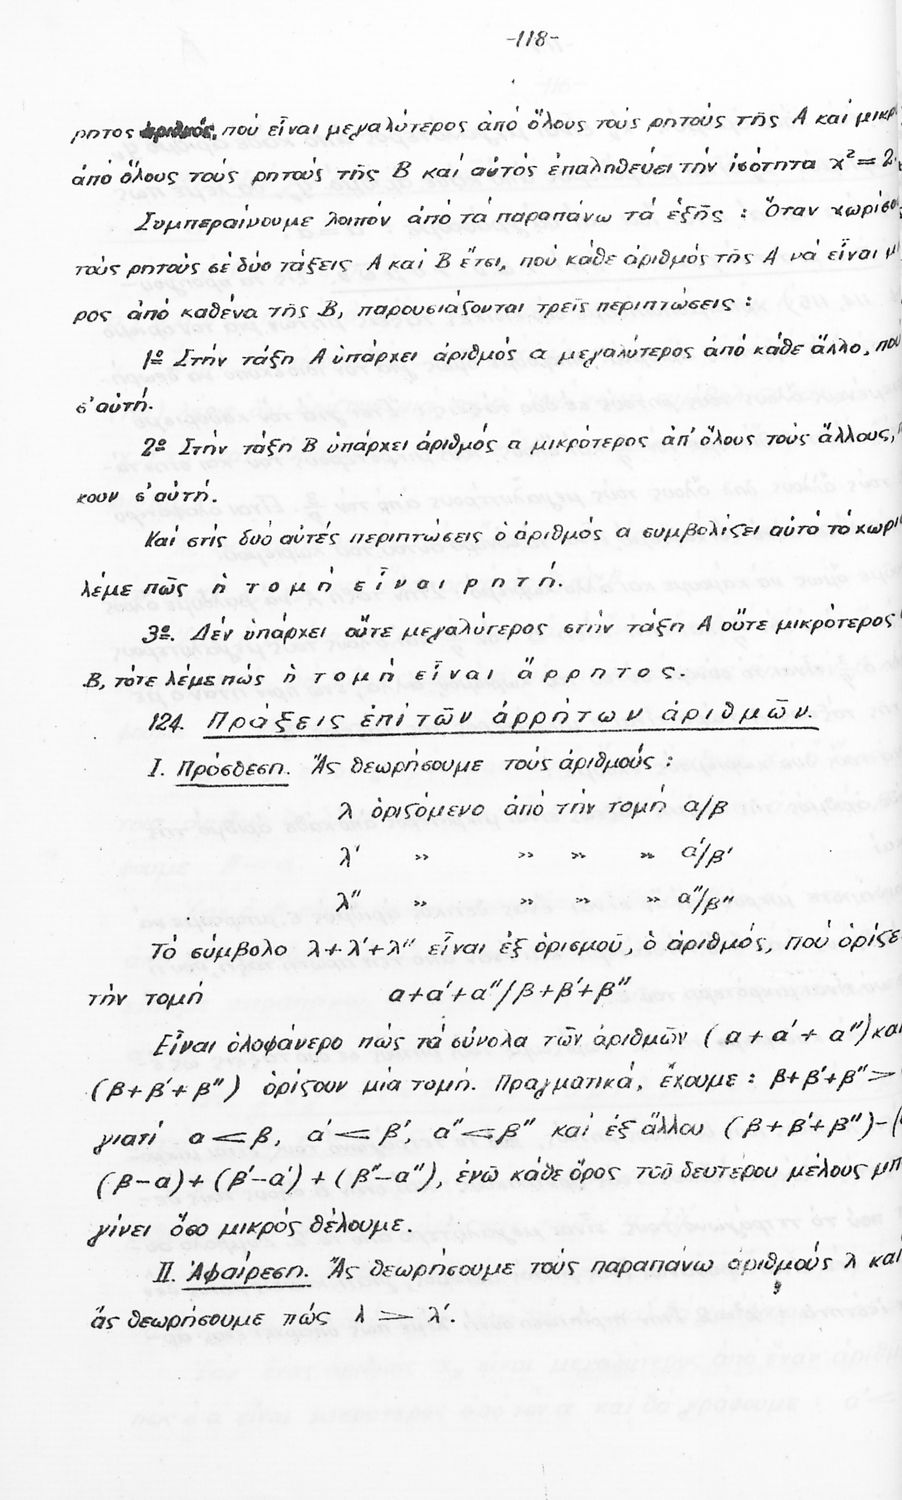 -118-
ρητος ἀριθμός, πού εἶναι μεγαλύτερος ἀπό ὅλους τούς ρητούς τῆς Α καί μικρ
ἀπό ὅλους τούς ρητούς τῆς Β καί αὐτός ἐπαληθεύει τήν ἰσότητα χ² = 2.
Συμπεραίνουμε λοιπόν ἀπό τά παραπάνω τά ἑξῆς : Ὅταν χωρίσου
τούς ρητούς σέ δύο τάξεις Α καί Β ἔτσι, πού κάθε ἀριθμός τῆς Α νά εἶναι μ
ρος ἀπό καθένα τῆς Β, παρουσιάζονται τρεῖς περιπτώσεις :
1º Στήν τάξη Α ὑπάρχει ἀριθμός α μεγαλύτερος ἀπό κάθε ἄλλο, πού
σ' αὐτή.
2º Στήν τάξη Β ὑπάρχει ἀριθμός α μικρότερος ἀπ' ὅλους τούς ἄλλους,
κουν σ' αὐτή.
Καί στίς δυό αὐτές περιπτώσεις ὁ ἀριθμός α συμβολίζει αὐτό τό χωρι
λέμε πῶς ἡ τ ο μ ή ε ἶ ν α ι ρ η τ ή.
3º. Δέν ὑπάρχει οὔτε μεγαλύτερος στήν τάξη Α οὔτε μικρότερος
Β, τότε λέμε πώς ἡ τ ο μ ή ε ἶ ν α ι ἄ ρ ρ η τ ο ς.
124. Πράξεις ἐπί τῶν ἀρρήτων ἀριθμῶν.
I. Πρόσθεση. Ἄς θεωρήσουμε τούς ἀριθμούς :
λ ὁριζόμενο ἀπό τήν τομή α/β
λ' " " " " α'/β'
λ'' " " " " α''/β''
Τό σύμβολο λ+λ'+λ'' εἶναι ἐξ ὁρισμοῦ, ὁ ἀριθμός, πού ὁρίζε
τήν τομή α+α'+α''/β+β'+β''
Εἶναι ὁλοφάνερο πώς τά σύνολα τῶν ἀριθμῶν (α+α'+α'') και
(β+β'+β'') ὁρίζουν μιά τομή. Πραγματικά, ἔχουμε : β+β'+β''>
γιατί α<β, α'<β', α''<β'' καί ἐξ ἄλλου (β+β'+β'')-(
(β-α)+(β'-α')+(β''-α''), ἐνῶ κάθε ὅρος τοῦ δευτέρου μέλους μπ
γίνει ὅσο μικρός θέλουμε.
II. Ἀφαίρεση. Ἄς θεωρήσουμε τούς παραπάνω ἀριθμούς λ καί
ἄς θεωρήσουμε πώς λ > λ'.